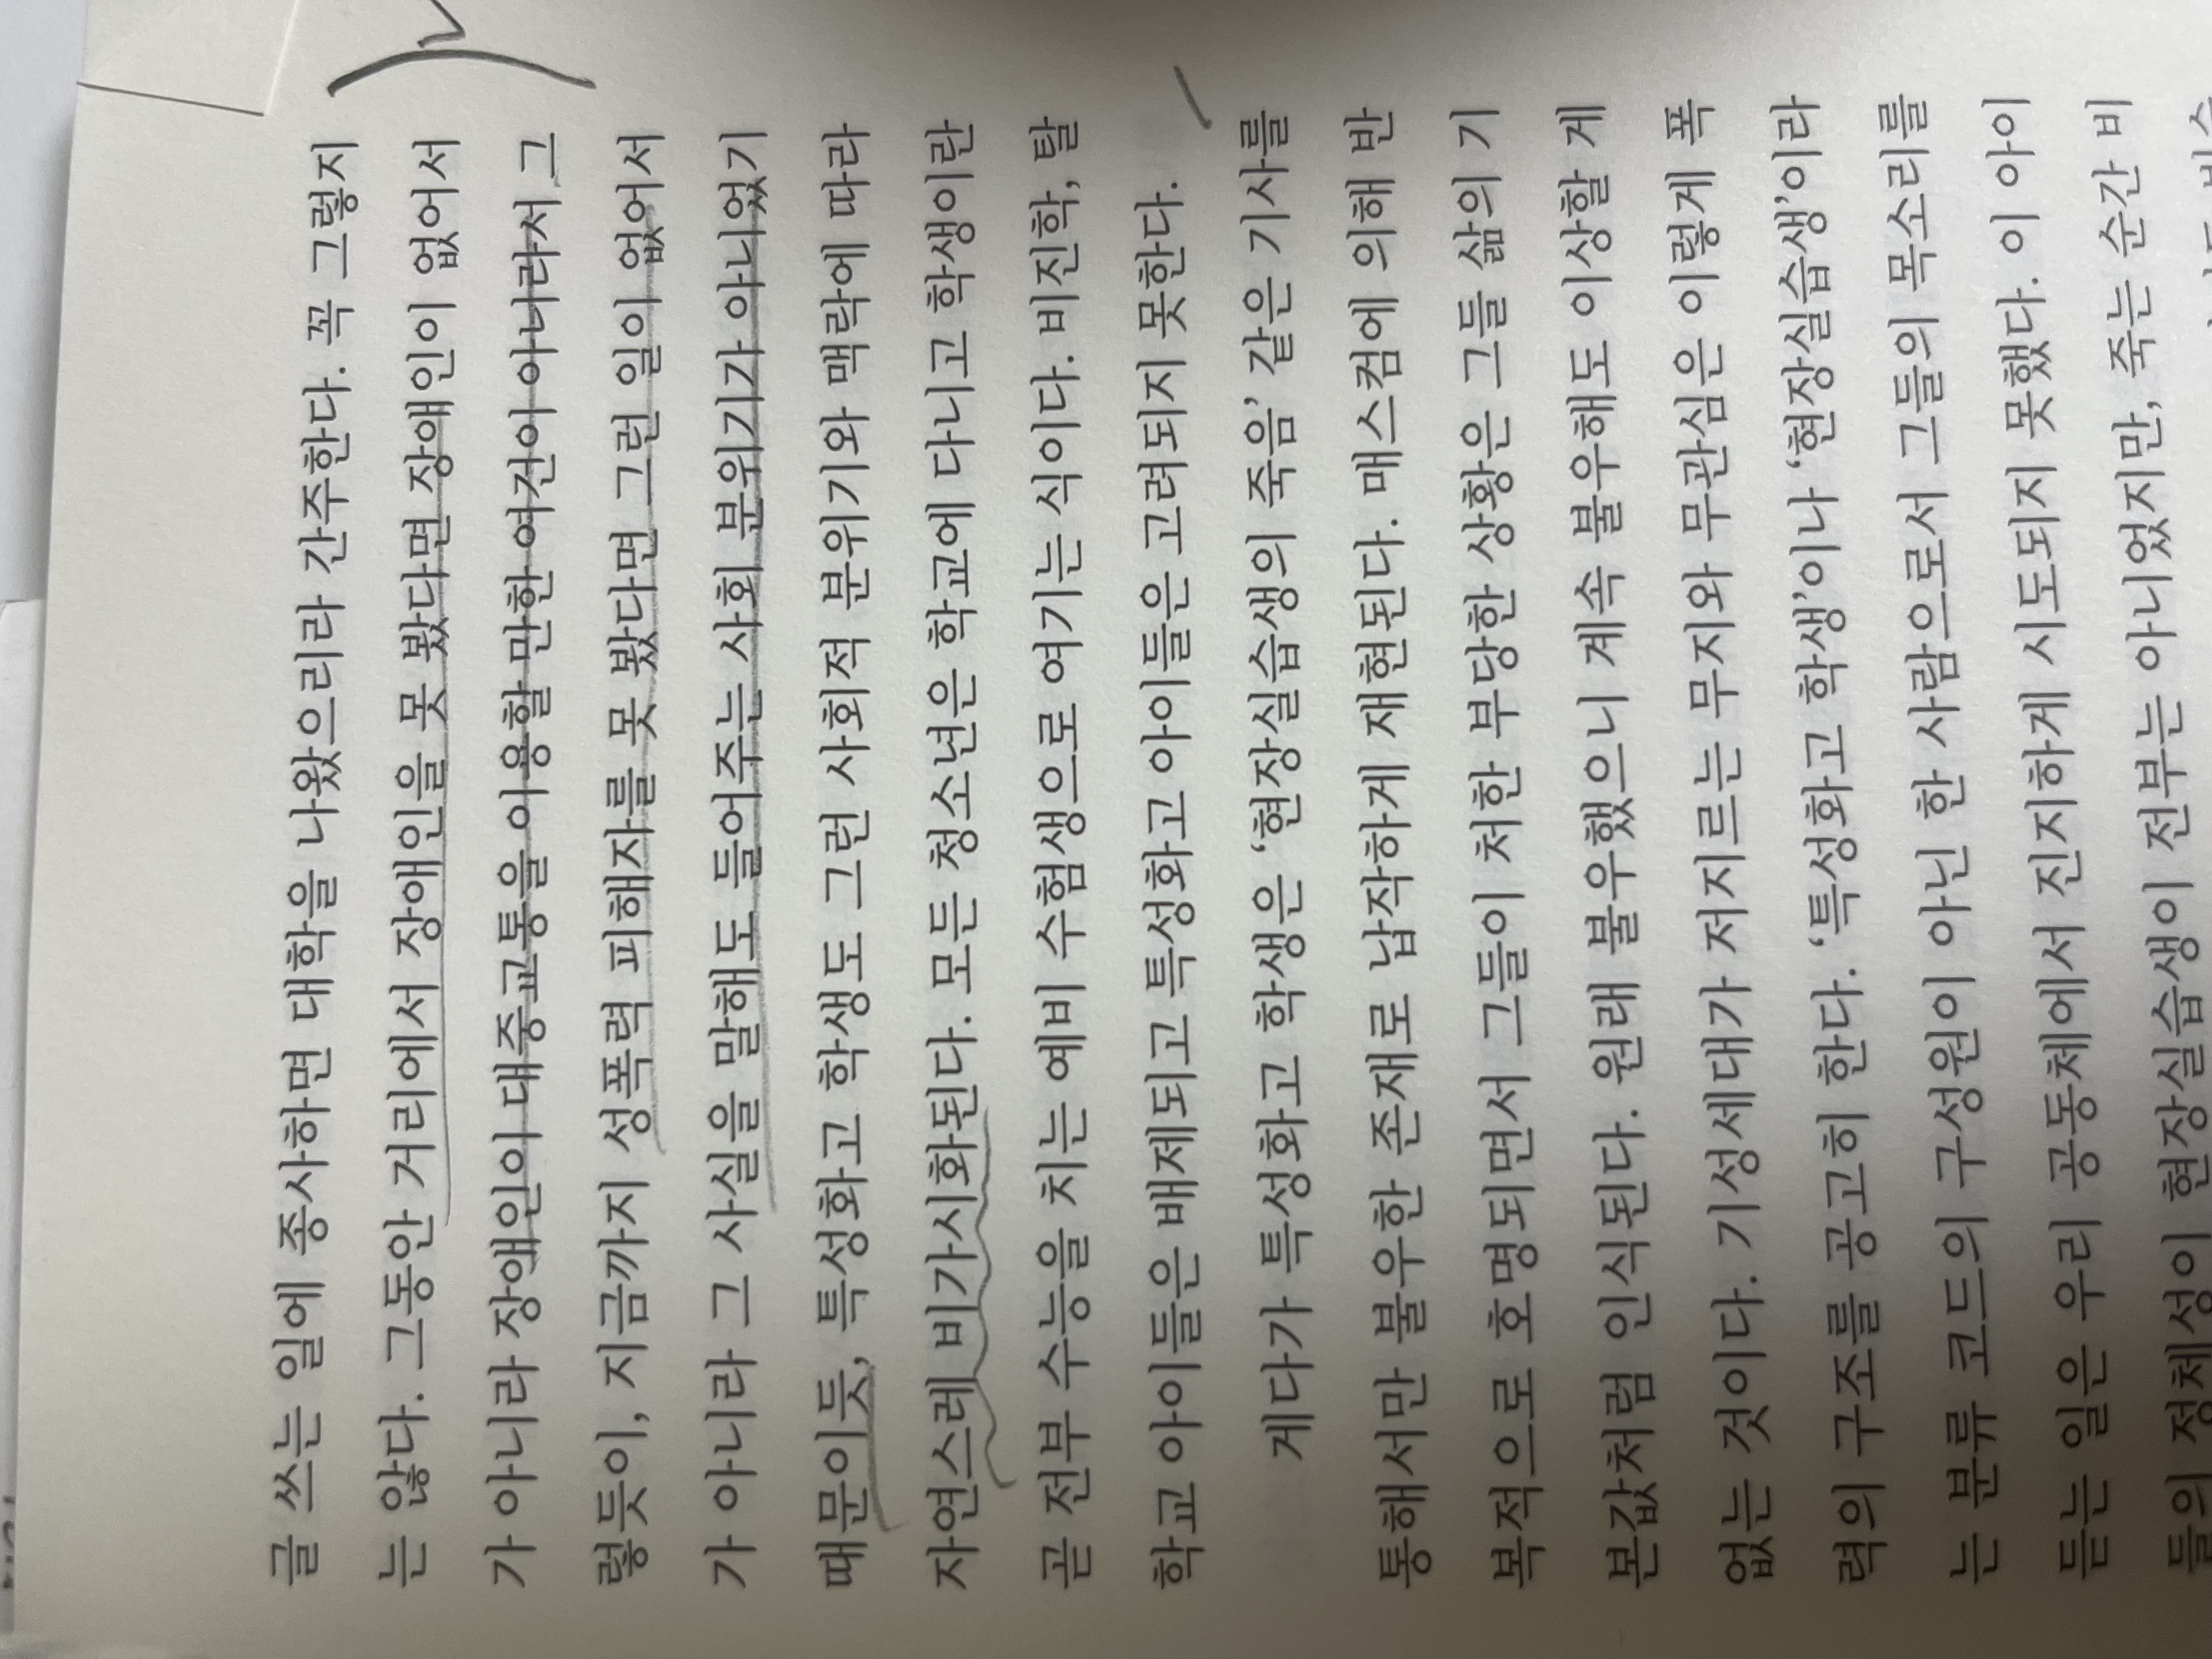 글 쓰는 일에 종사하면 대학을 나왔으리라 간주한다. 꼭 그렇지
는 않다. 그동안 거리에서 장애인을 못 봤다면 장애인이 없어서
가 아니라 장애인이 대중교통을 이용할 만한 여건이 아니라서 그
렇듯이, 지금까지 성폭력 피해자를 못 봤다면 그런 일이 없어서
가 아니라 그 사실을 말해도 들어주는 사회 분위기가 아니었기
때문이듯, 특성화고 학생도 그런 사회적 분위기와 맥락에 따라
자연스레 비가시화된다. 모든 청소년은 학교에 다니고 학생이란
곧 전부 수능을 치는 예비 수험생으로 여기는 식이다. 비진학, 탈
학교 아이들은 배제되고 특성화고 아이들은 고려되지 못한다.
게다가 특성화고 학생은 ‘현장실습생의 죽음’ 같은 기사를
통해서만 불우한 존재로 납작하게 재현된다. 매스컴에 의해 반
복적으로 호명되면서 그들이 처한 부당한 상황은 그들 삶의 기
본값처럼 인식된다. 원래 불우했으니 계속 불우해도 이상할 게
없는 것이다. 기성세대가 저지르는 무지와 무관심은 이렇게 폭
력의 구조를 공고히 한다. ‘특성화고 학생’이나 ‘현장실습생’이라
는 분류 코드의 구성원이 아닌 한 사람으로서 그들의 목소리를
듣는 일은 우리 공동체에서 진지하게 시도되지 못했다. 이 아이
들의 정체성이 현장실습생이 전부는 아니었지만, 죽는 순간 비